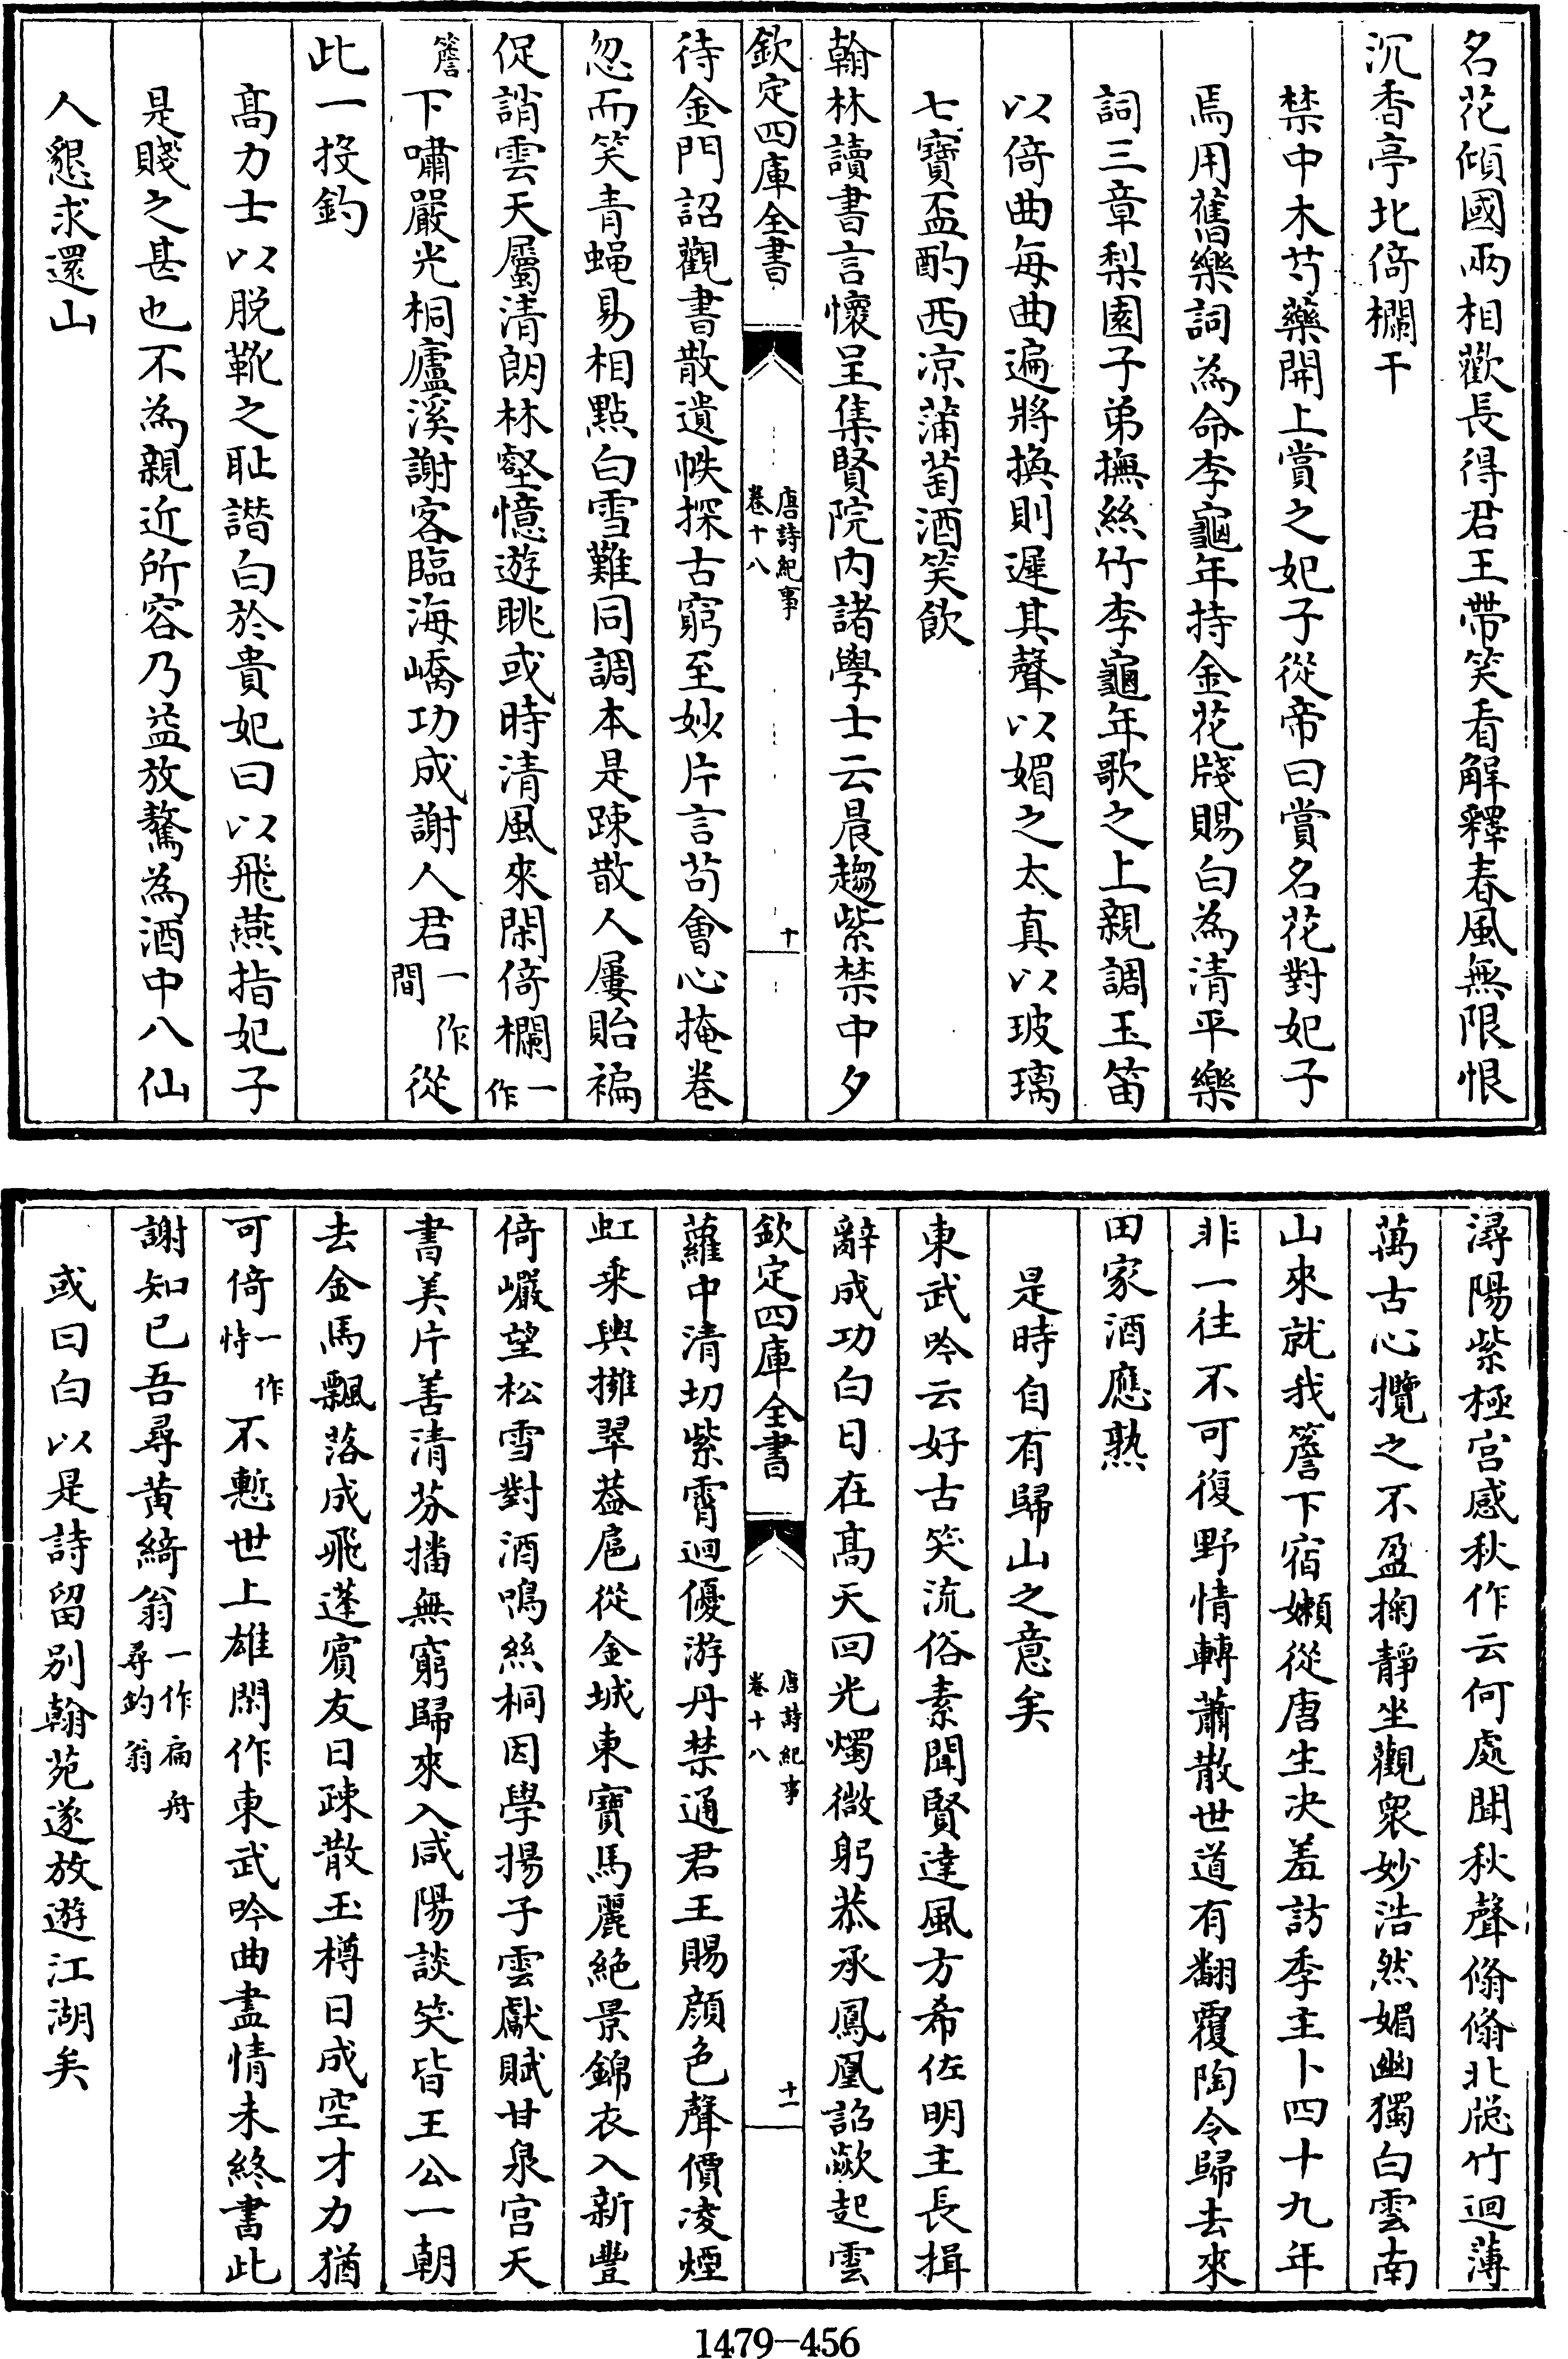 名花傾國兩相歡長得君王帶笑看解釋春風無限恨
沉香亭北倚欄干
禁中木芍藥開上賞之妃子從帝曰賞名花對妃子
焉用舊樂詞為命李龜年持金花牋賜白為清平樂
詞三章梨園子弟撫絲竹李龜年歌之上親調玉笛
以倚曲每曲遍將換則遲其聲以媚之太真以玻璃
七寳盃酌西凉蒲萄酒笑飲
翰林讀書言懷呈集賢院内諸學士云晨趨紫禁中夕
欽定四庫全書
唐詩紀事
卷十八
十
待金門詔觀書散遺帙探古窮至妙片言苟會心掩卷
忽而笑青蝇易相點白雪難同調本是踈散人屢貽褊
促誚雲天屬清朗林壑憶遊眺或時清風來閑倚欄一作
簷下嘯嚴光桐廬溪謝客臨海嶠功成謝人君一作間從
此一投釣
髙力士以脱靴之耻譖白於貴妃曰以飛燕指妃子
是賤之甚也不為親近所容乃益放驁為酒中八仙
人懇求還山
潯陽紫極宫感秋作云何處聞秋聲翛翛北牕竹迴薄
萬古心攬之不盈掬靜坐觀衆妙浩然媚幽獨白雲南
山來就我簷下宿嬾從唐生决羞訪季主卜四十九年
非一往不可復野情轉蕭散世道有翻覆陶令歸去來
田家酒應熟
是時自有歸山之意矣
東武吟云好古笑流俗素聞賢達風方希佐明主長揖
辭成功白日在髙天回光燭微躬恭承鳳凰詔歘起雲
欽定四庫全書
唐詩紀事
卷十八
十一
蘿中清切紫霄迴優游丹禁通君王賜顔色聲價凌煙
虹乘輿擁翠葢扈從金城東寳馬麗絶景錦衣入新豐
倚巗望松雪對酒鳴絲桐因學揚子雲獻賦甘泉宫天
書美片善清芬播無窮歸來入咸陽談笑皆王公一朝
去金馬飄落成飛蓬賔友日踈散玉樽日成空才力猶
可倚一作恃不慙世上雄閑作東武吟曲盡情未終書此
謝知已吾尋黄綺翁一作扁舟尋釣翁
或曰白以是詩留别翰苑遂放遊江湖矣
1479-456